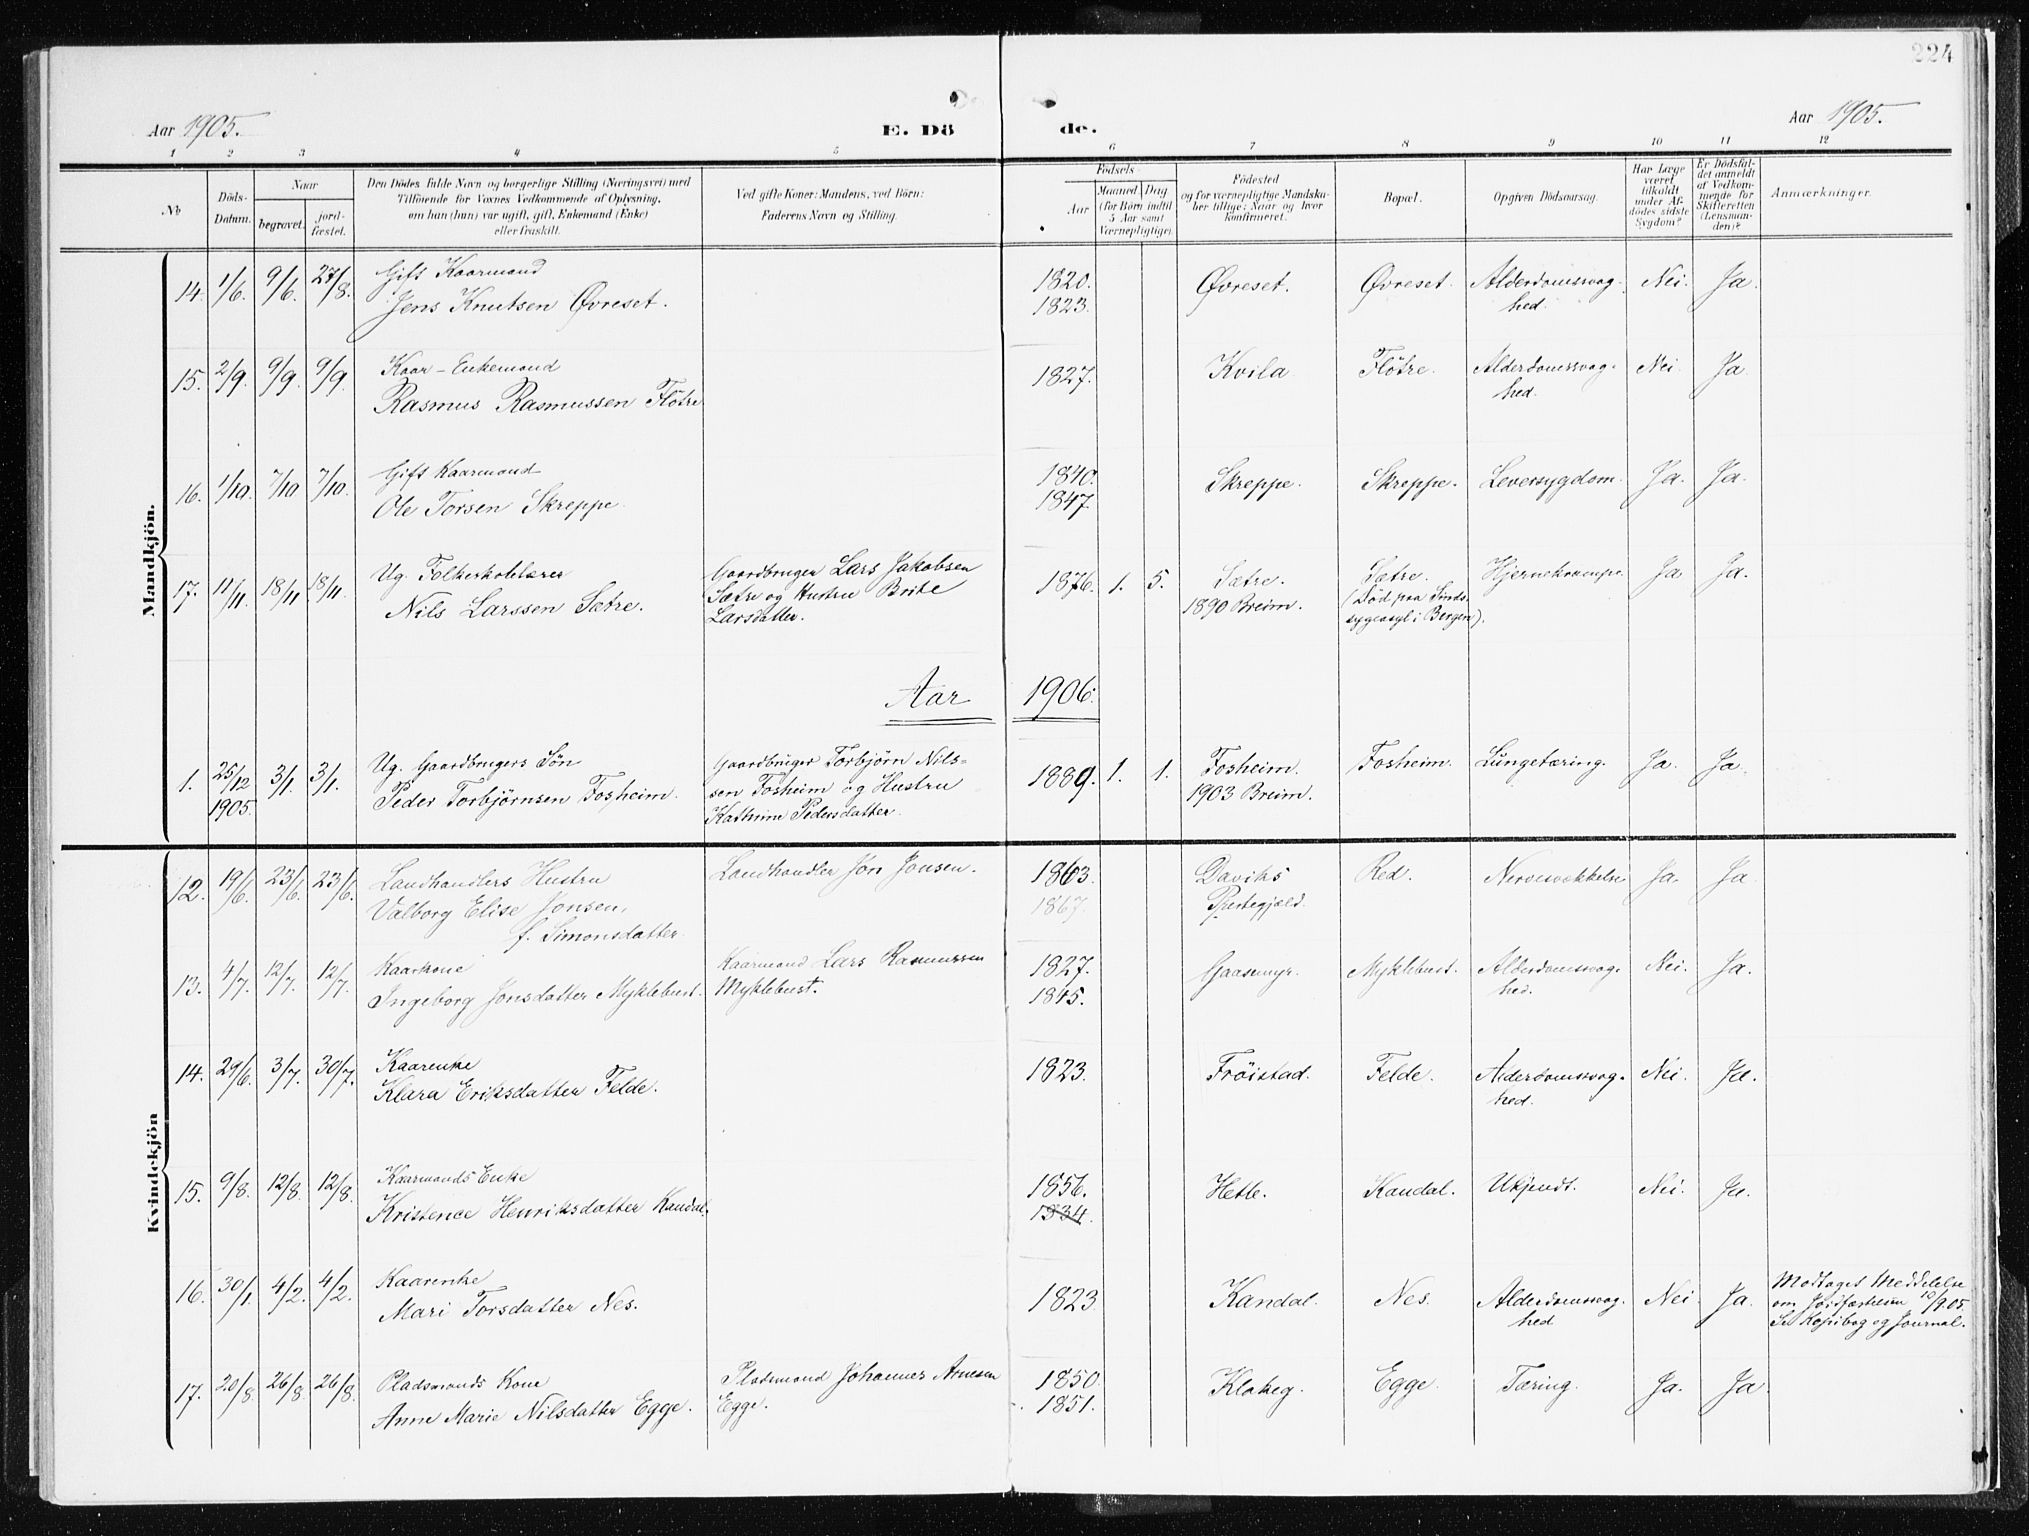 224
Aar 1905.
E. Dö de.
Aar 1905.
1 2 3 4 5 6 7 8 9 10 11 12
No
Döds-Datum.
Naar
begravet.
jord-fæstet.
Den Dödes fulde Navn og borgerlige Stilling (Næringsvei) med
Tilföiende for Voxnes Vedkommende af Oplysning,
om han (hun) var ugift, gift, Enkemand (Enke)
eller fraskilt.
Ved gifte Koner: Mandens, ved Börn:
Faderens Navn og Stilling.
Födsels-
Aar
Maaned Dag
(for Börn indtil
5 Aar samt
Værnepligtige).
Födested
og for værnepligtige Mandska-
ber tillige: Naar og hvor
konfirmeret.
Bopæl.
Opgiven Dödsaarsag.
Har Læge
været
tilkaldt
under Af-
dødes sidste
Sygdom?
Er Dödsfal-
det anmeldt
af Vedkom-
mende for
Skifteretten
(Lensman-
den)?
Anmærkninger.
Mandkjön.
14. 1/6. 9/6. 27/8. Gift Kaarmand
Jens Knutsen Øvreset. 1820. 1823. Øvreset. Øvreset. Alderdomssvag-
hed. Nei. Ja.
15. 2/9. 9/9. 9/9. Kaar-Enkemand
Rasmus Rasmussen Flötre 1827. Kvila Flötre. Alderdomssvag-
hed. Nei. Ja.
16. 1/10. 7/10 7/10. Gift Kaarmand
Ole Torsen Skreppe. 1840. 1847. Skreppe. Skreppe. Leversygdom. Ja. Ja.
17. 11/11. 18/11 18/11. Ug. Folkeskolelærer
Nils Larssen Sætre. Gaardbruger Lars Jakobsen
Sætre og Hustru Brite
Larsdatter. 1876. 1. 5. Sætre.
1890 Breim. Sætre.
(Död paa Sinds-
sygeasyl i Bergen). Hjernekrampe. Ja Ja.
Aar 1906.
1. 25/12 1905. 3/1. 3/1. Ug. Gaardbrugers Sön
Peder Torbjørnsen Fosheim. Gaardbruger Torbjørn Nils-
sen Fosheim og Hustru
Kathrine Pedersdatter. 1889. 1. 1. Fosheim.
1903 Breim. Fosheim. Lungetæring. Ja. Ja.
Kvindekjön
12. 19/6. 23/6. 23/6. Landhandlers Hustru
Valborg Elise Jonsen,
f. Simonsdatter. Landhandler Jon Jonsen. 1863. 1867. Daviks
Prestegjæld. Red. Nervesvækkelse Ja. Ja.
13. 4/7. 12/7. 12/7. Kaarkone
Ingeborg Jonsdatter Myklebust. Kaarmand Lars Rasmussen
Myklebust. 1827. 1845. Gaasemyr. Myklebust. Alderdomssvag-
hed. Nei. Ja.
14. 29/6. 3/7. 30/7. Kaarenke
Klara Eriksdatter Felde. 1823. Fröistad. Felde. Alderdomssvag-
hed. Nei. Ja.
15. 9/8. 12/8. 12/8. Kaarmands Enke
Kristence Henriksdatter Kandal. 1856. 1834. Hetle. Kandal. Ukjendt. Nei. Ja.
16. 30/1. 4/2. 4/2. Kaarenke
Mari Torsdatter Nes. 1823. Kandal. Nes. Alderdomssvag-
hed Nei. Ja. Modtaget Meddelelse
om Jordfæstelsen 10/9.05.
Se Kopibog og Journal.
17. 20/8. 26/8. 26/8. Pladsmands Kone
Anne Marie Nilsdatter Egge. Pladsmand Johannes Arnesen
Egge. 1850. 1851. Klakeg. Egge. Tæring. Ja. Ja.